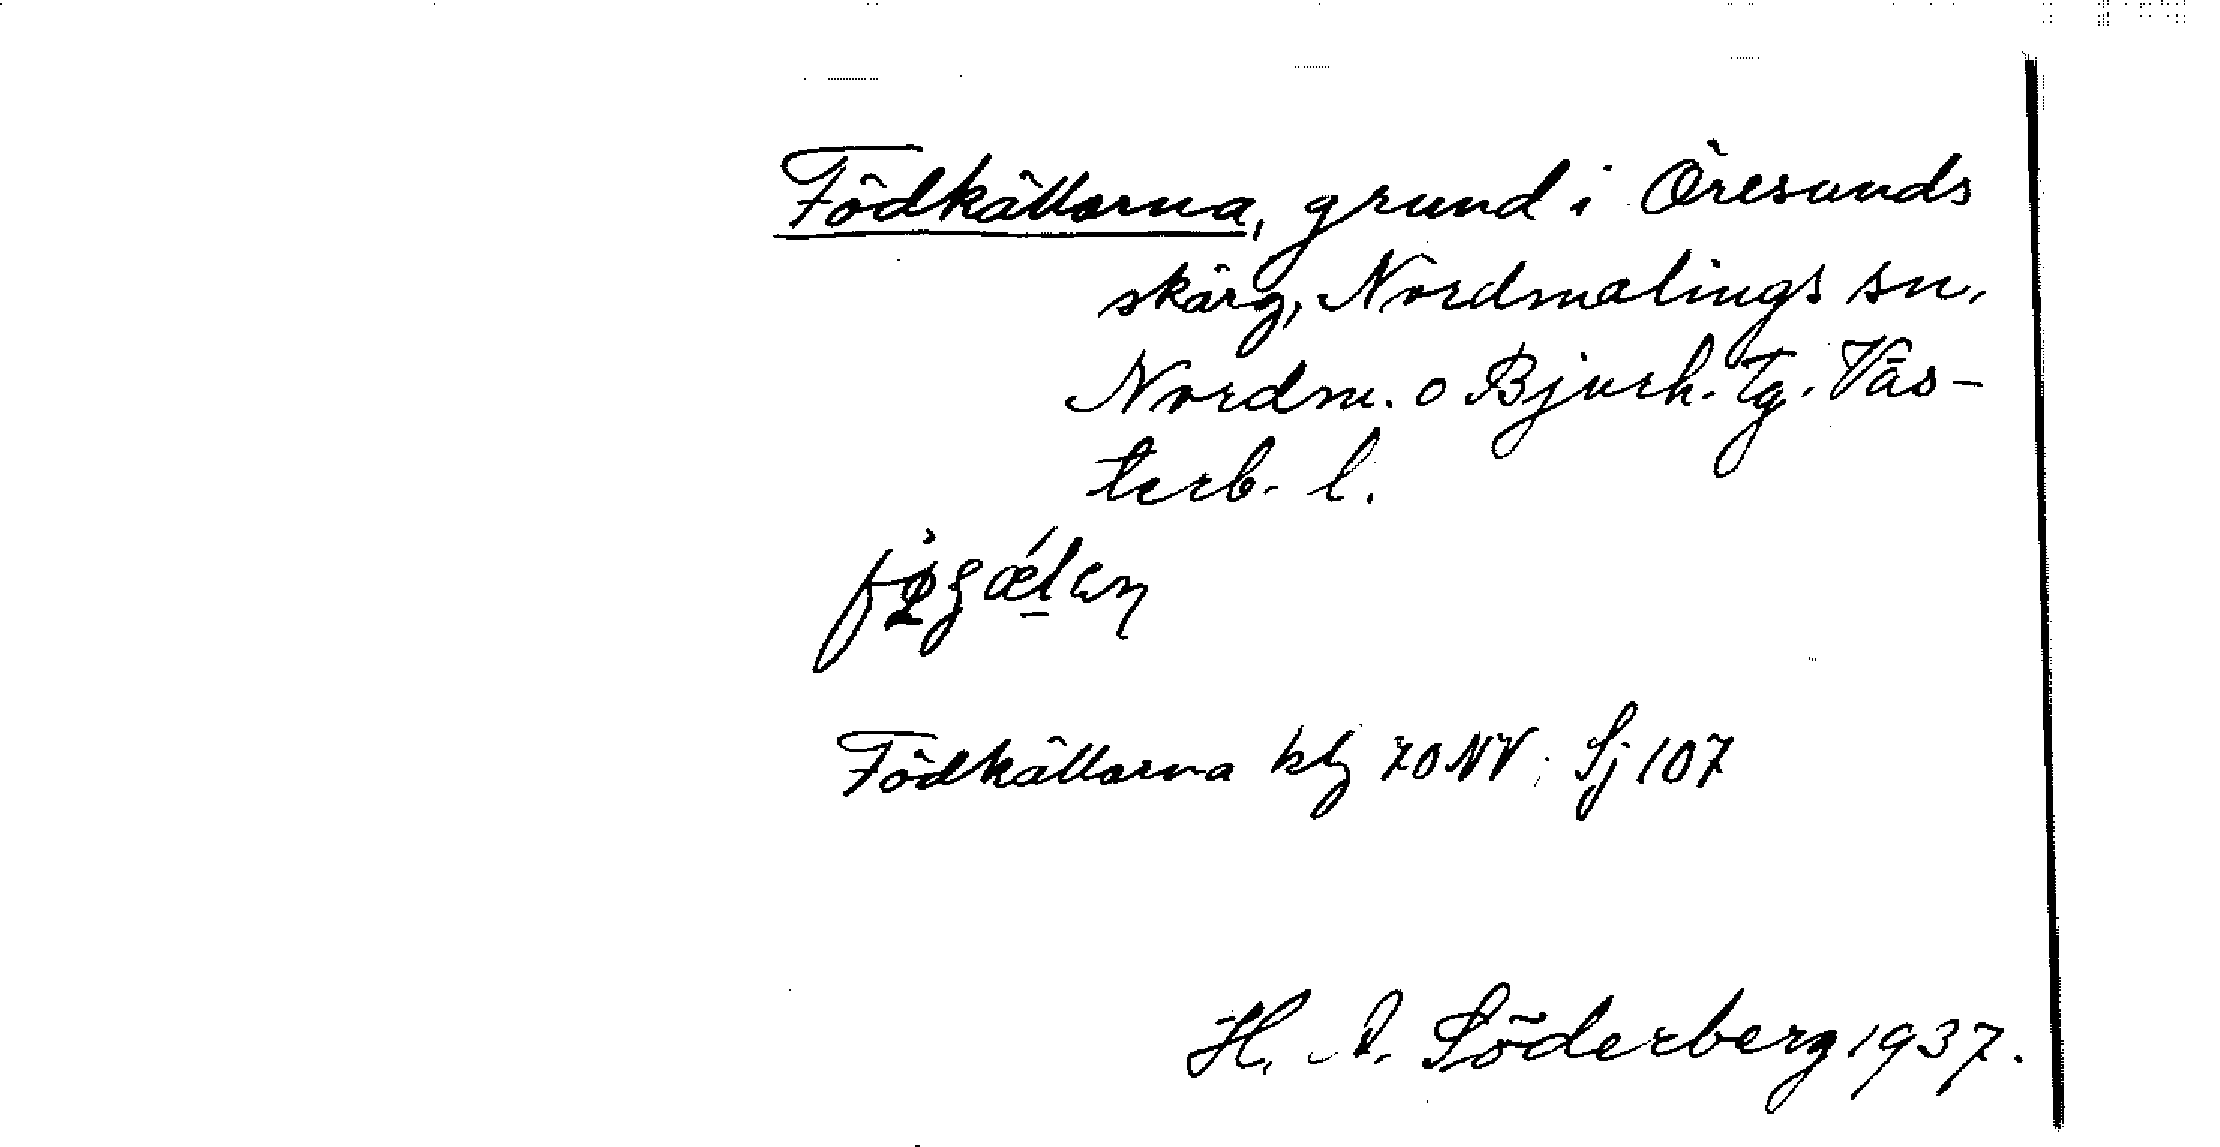 Födkällarna, grund i Öresunds
skärg, Nordmalings sn,
Nordm. o Bjurh. tg. Väs-
terb. l.
Födkällarna blz 70 NV; Sj 107
H. A. Söderberg 1937.